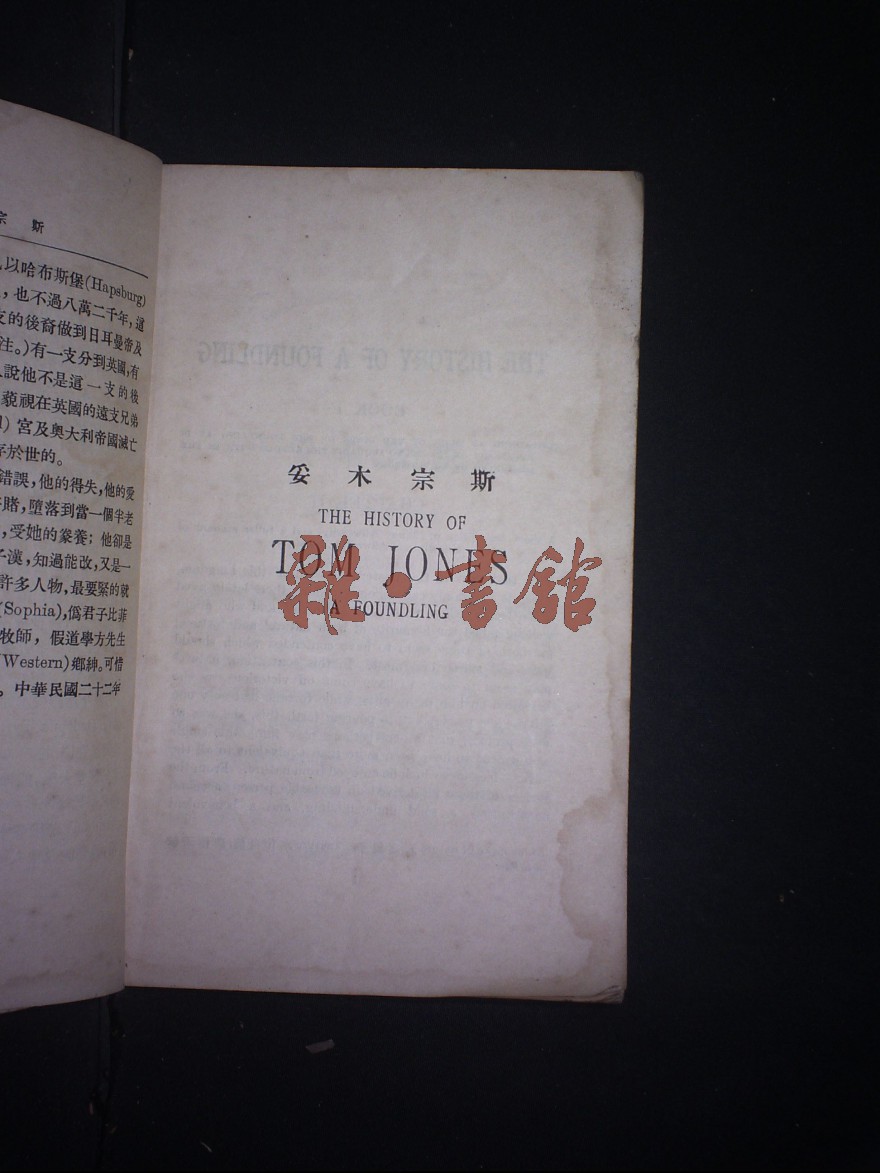 宗斯
以哈布斯堡(Hapsburg)
，也不過八萬二千年，這
支的後裔做到日耳曼帝及
注。)有一支分到英國，有
說他不是這一支的後
藐視在英國的遠支兄弟
宮及奧大利帝國滅亡
於世的。
錯誤，他的得失，他的愛
賭，墮落到當一個半老
，受她的豢養；他卻是
子漢，知過能改，又是一
許多人物，最要緊的就
(Sophia)，僞君子比菲
牧師，假道學方先生
(Western)鄉紳。可惜
。中華民國二十二年
妥木宗斯
THE HISTORY OF
TOM JONES
A FOUNDLING
雜·書館